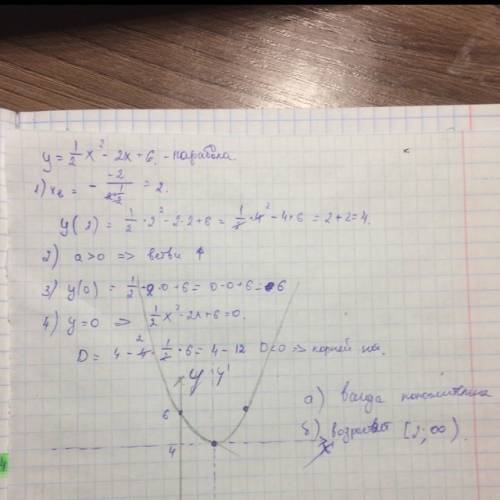 y = 1/2 x² - 2x + 6. - парабола.
1) xв = - -2/(2·1/2) = 2.
y(2) = 1/2 · 2² - 2·2 + 6 = 1/2 · 4 - 4 + 6 = 2 + 2 = 4.
2) a > 0 => ветви ↑
3) y(0) = 1/2 · 0 · 0 + 6 = 0 · 0 + 6 = 6
4) y = 0 => 1/2 x² - 2x + 6 = 0.
D = 4 - 4 · 1/2 · 6 = 4 - 12 D < 0 => корней нет.
y y'
а) всегда положительна
6
б) возрастает [2; ∞).
x'
4
4